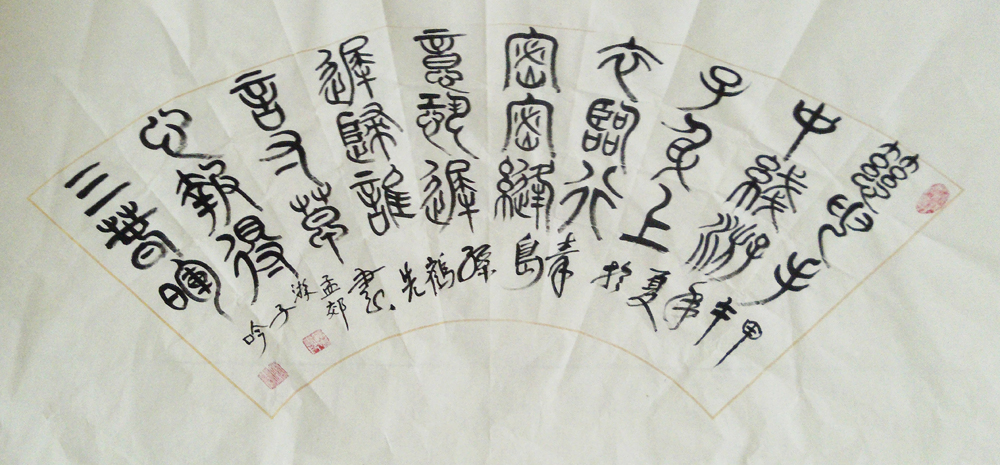 慈母手
中線游
子身上
衣臨行
密密縫
意恐遲
遲歸誰
言寸草
心報得
三春暉
甲午年夏於青島孫鶴先書
孟郊
游子吟